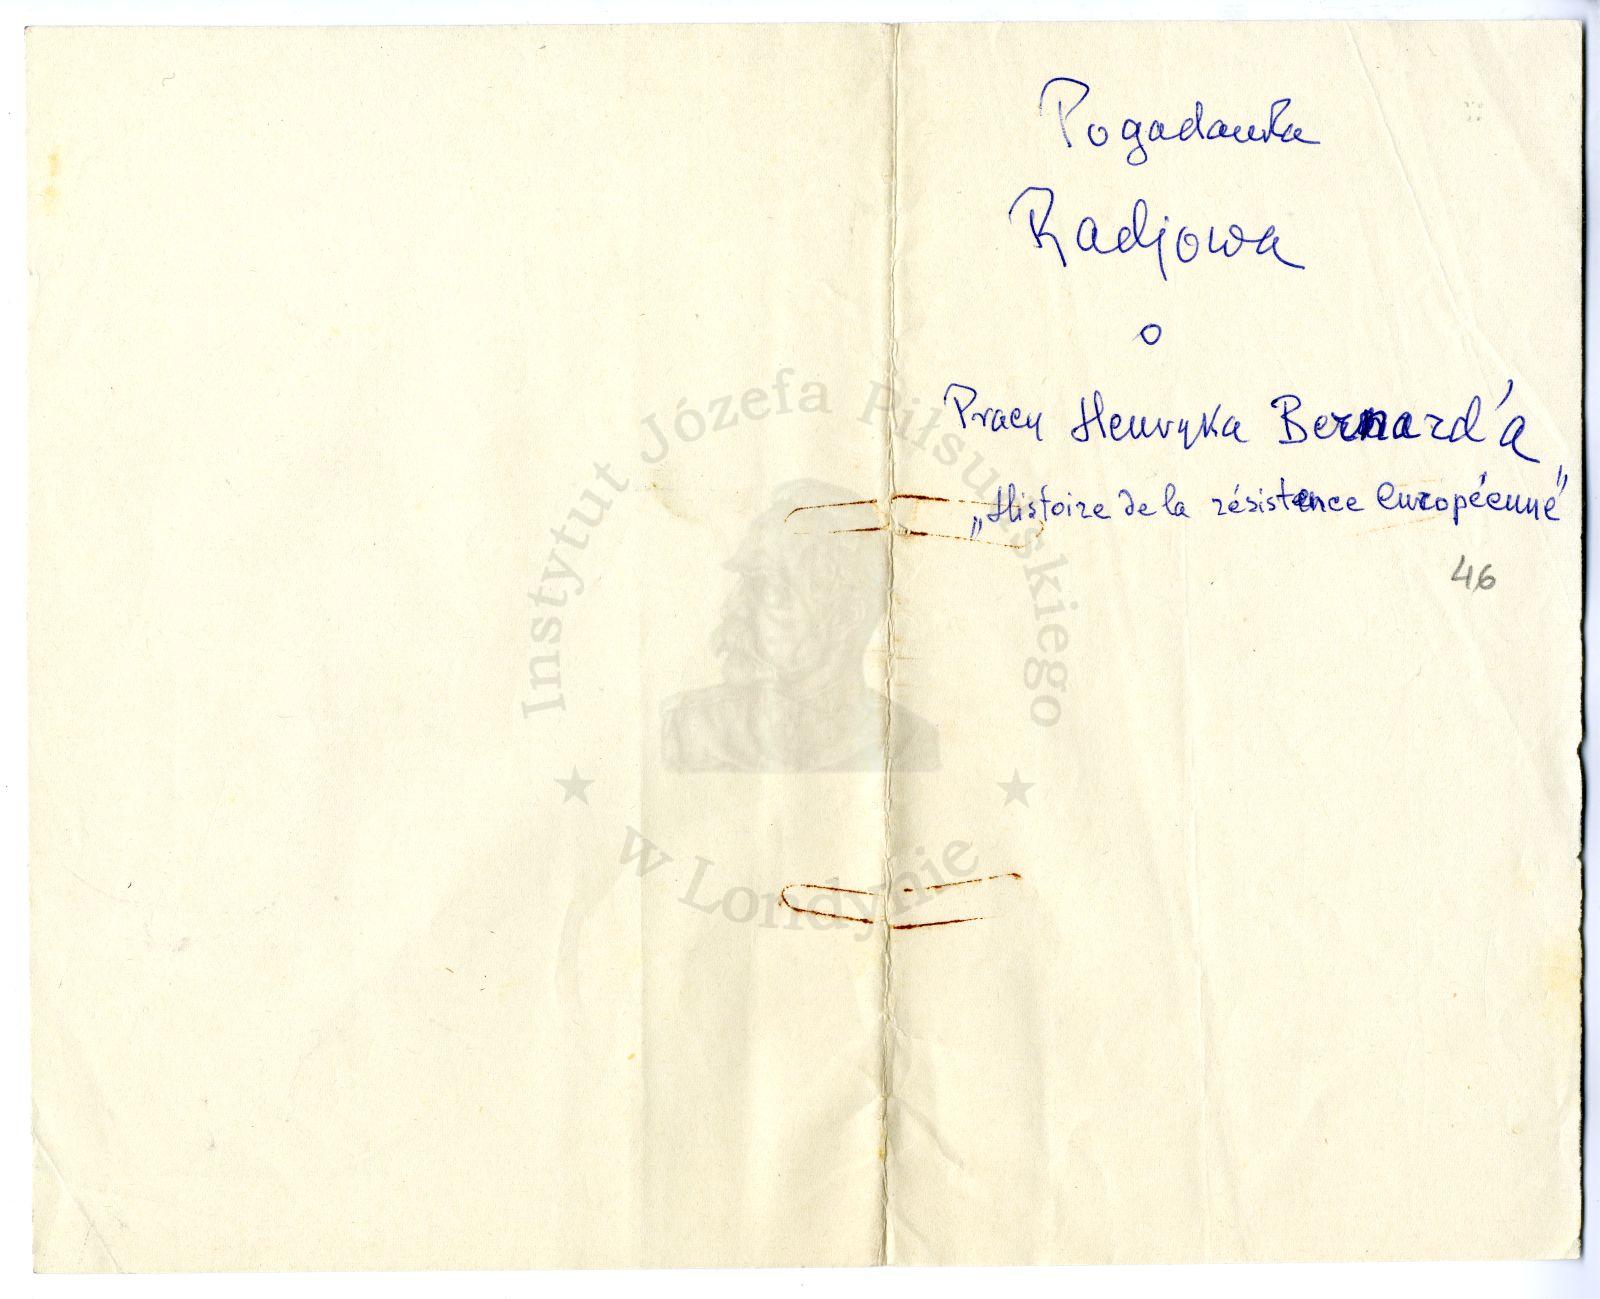 Pogadanka
Radjowa
o
Pracy Henryka Bernard'a
„Histoire de la résistence européenne"
46
Instytut Józefa Piłsudskiego
w Londynie